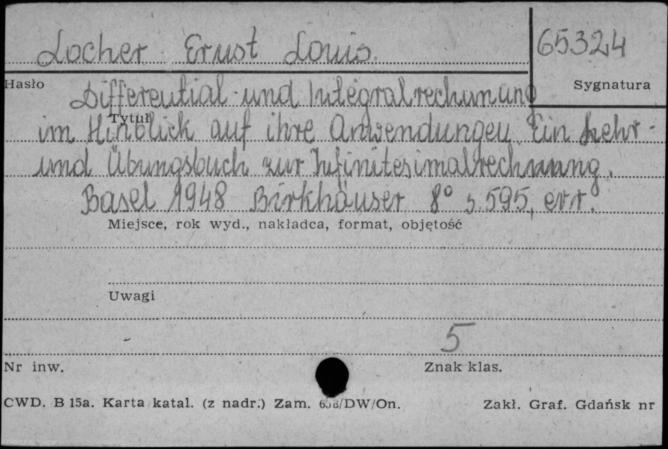 Locher Ernst Louis.
65324
Hasło
Sygnatura
Differential- und Integralrechnung
Tytuł
im Hinblick auf ihre Anwendungen. Ein Lehr-
und Übungsbuch zur Infinitesimalrechnung.
Basel 1948 Birkhäuser 8° s.595, err.
Miejsce, rok wyd., nakładca, format, objętość
Uwagi
5
Nr inw.
Znak klas.
CWD. B 15a. Karta katal. (z nadr.) Zam. 658/DW/On.
Zakł. Graf. Gdańsk nr